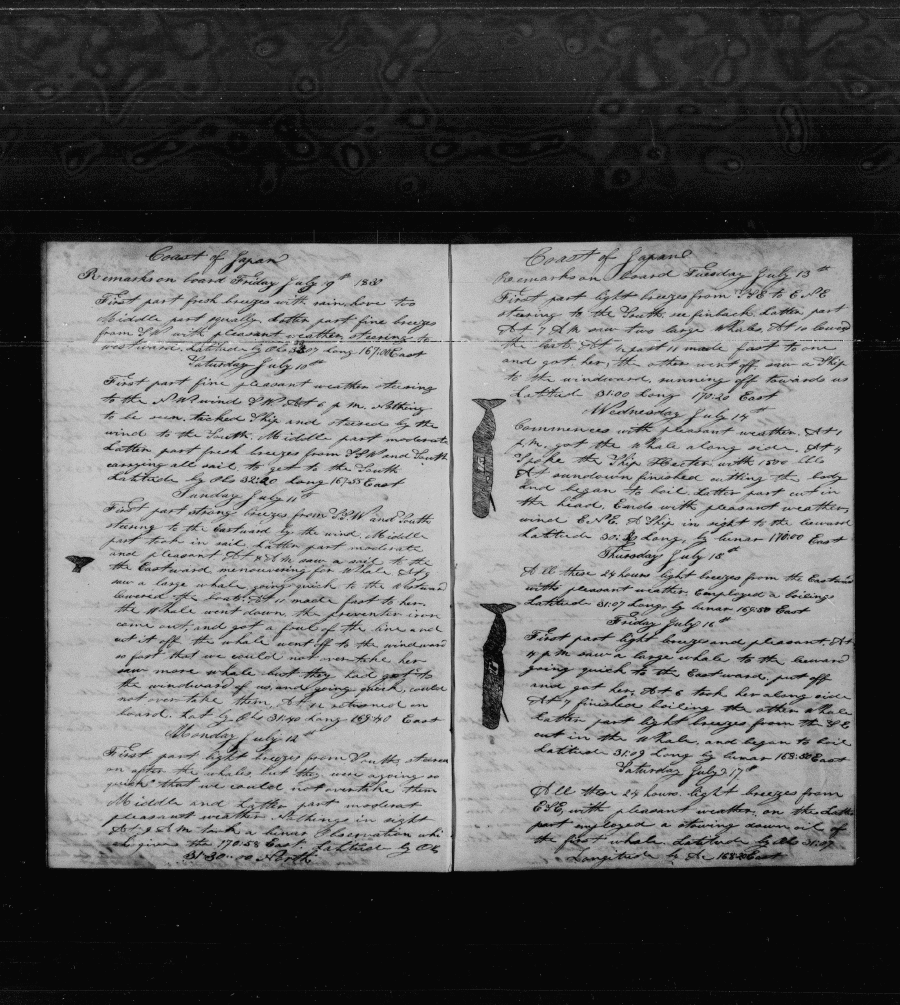 Coast of Japan
Remarks on board Friday July 9th 183
First part fresh breezes with rain, hove to
Middle part squally Latter part fine breezes
from SW with pleasant weather, steering to
westward, Latitude by Obs 07 Long 167:00 East
Saturday July 10th
First part fine pleasant weather steering
to the NW wind SW. At 6 p m. Nothing
to be seen, tacked Ship and steered by the
wind to the South, Middle part moderate
Latter part fresh breezes from SSW and South
carrying all sail to get to the South
Latitude by Obs 32:20 Long 167:55 East
Sunday July 11th
First part strong breezes from SSW and South
steering to the Eastward by the wind. Middle
part took in sail, Latter part moderate
and pleasant At 4 A m saw a sail to the
the Eastward menouvering for Whale At 9
saw a large whale going quick to the Westward
lowered the boats, At 11 made fast to her,
the Whale went down the iron
came out, and got a foul of the line and
cut it off the whale went off to the windward
so fast that we could not over take her
saw more whale but they had got to
the windward of us, and going quick, could
not over take them At returned on
board, Lat by Obs 31:40 Long 169:40 East
Monday July 12th
First part light breezes from South, steered
on after the whales, but they were a going so
quick that we could not overtake them
Middle and Latter part moderat
pleasant weather Nothing in sight
At 9 A M took a lunar Observation whi
ch gives the 170:58 East, Latitude by Ob
31:30:00 North
Coast of Japan
Remarks on board Tuesday July 13th
First part light breezes from SSE to ESE
steering to the South Latter part
At 7 A M saw two large Whales, At 10 lowered
the boats. At ½ past 11 made fast to one
and got her, the other went off, saw a Ship
to the windward, running off towards us
Latitude 31:00 Long 170:20 East
Wednesday July 14th
Commences with pleasant weather, At 1
p m. got the whale along side, At 4
Spoke the Ship Hector with 1800 bls
At soundown finished cutting the body
and began to boil, Latter part cut in
the head, Ends with pleasant weather,
wind ESE, A Ship in sight to the leeward
Latitude 30: Long, by lunar 170:00 East
Thursday July 15th
All these 24 hours light breezes from the Eastward
with pleasant weather Employed a boiling
Latitude 31:07 Long by lunar 169:50 East
Friday July 16th
First part light breezes and pleasant. At
4 p m saw a large whale to the leeward
going quick to the Eastward, put off
and got her, At 6 took her along side
At 7 finished boiling the other whale
Latter part light breezes from the SE
cut in the Whale, and began to boil
Latitude 31:09 Long by lunar 168:50 East
Saturday July 17th
All these 24 hours, light breezes from
ESE, with pleasant weather, on the Latter
part employed a stowing down oil of
the first whale, Latitude by Obs 31:07
Longitude by 168: East